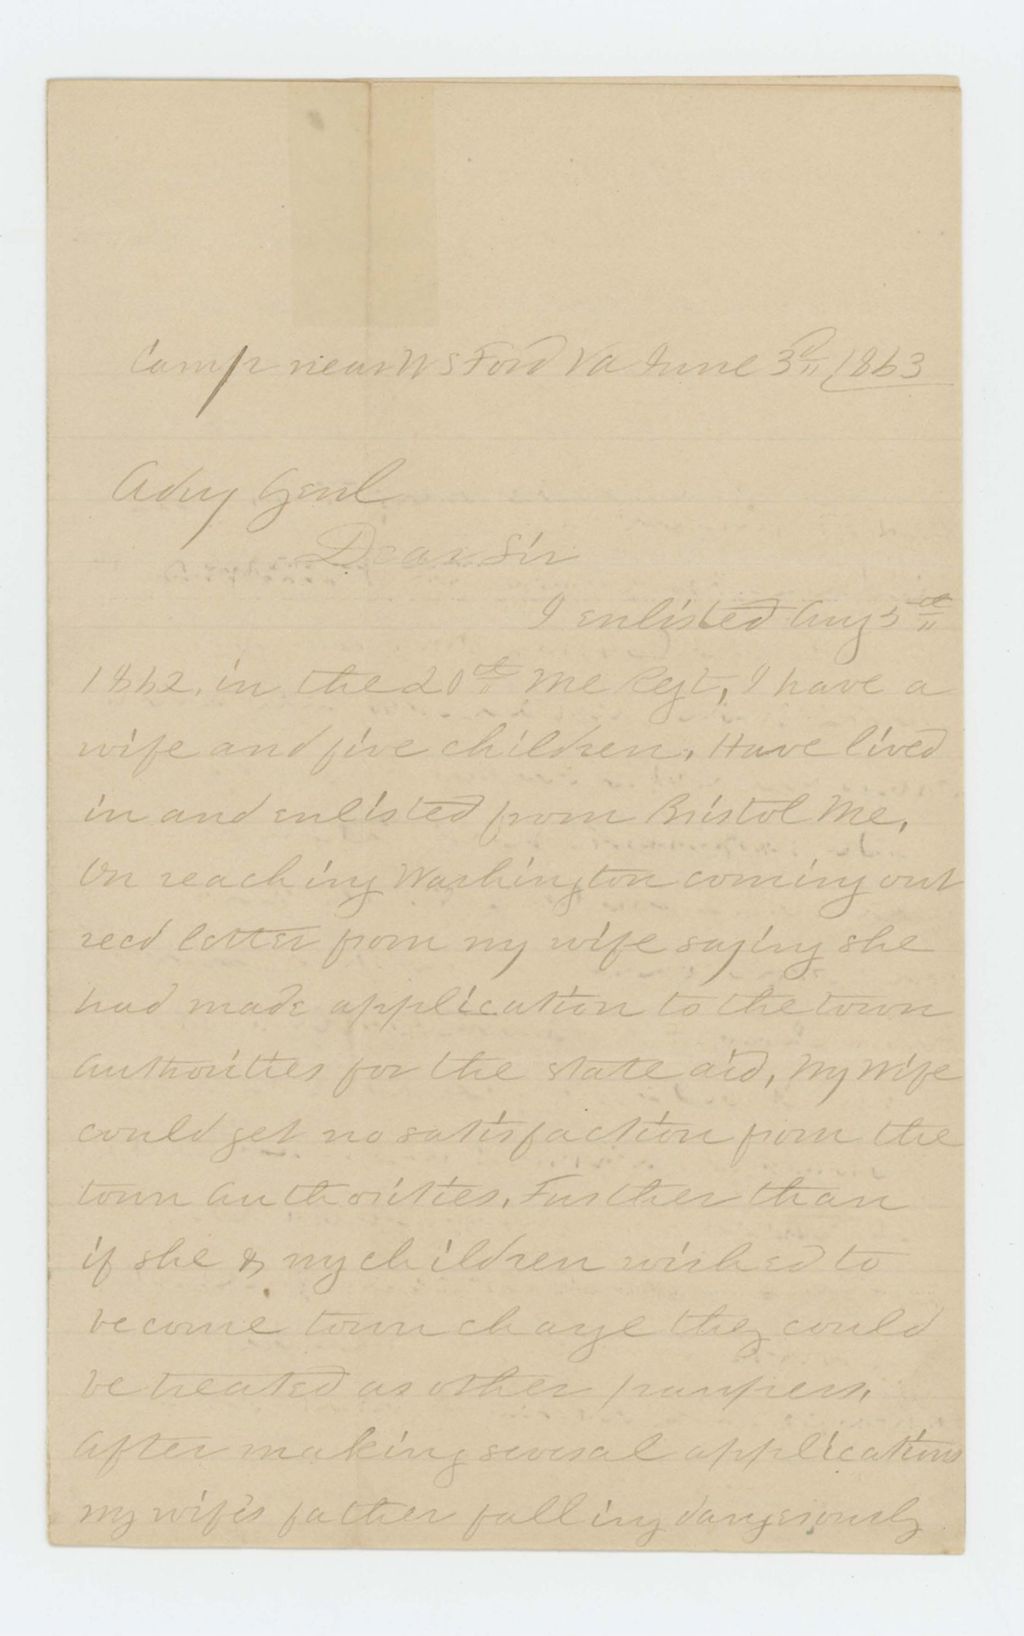 Camp near U S Ford Va June 3d 1863
Adug Genl
Dear Sir
I enlisted Aug 5th
1862, in the 20th Me Regt, I have a
wife and five children, Have lived
in and enlisted from Bristol Me,
On reaching Washington coming out
recd letter from my wife saying she
had made application to the town
authorities for the state aid, My wife
could get no satisfaction from the
town authorities, Further than
if she & my children wished to
become town charge they could
be treated as other paupers,
After making several applications
my wife's father falling dangerously